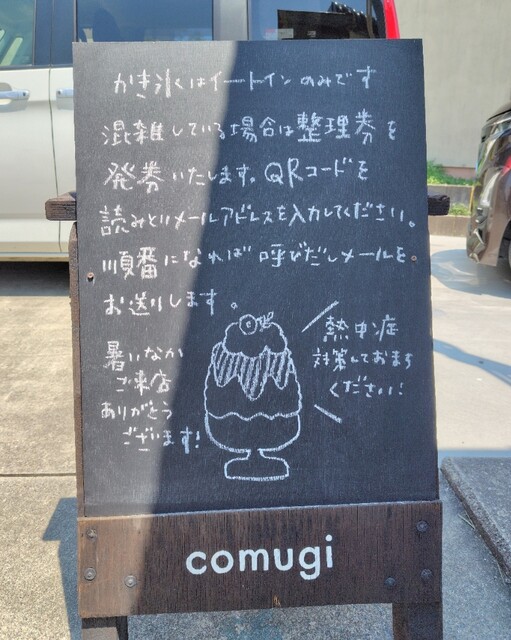 かき氷はイートインのみです
混雑している場合は整理券を
発券いたします。QRコードを
読みとりメールアドレスを入力してください。
順番になれば呼びだしメールを
お送りします。
暑いなか
ご来店
ありがとう
ございます!
熱中症
対策しておまち
ください!
comugi